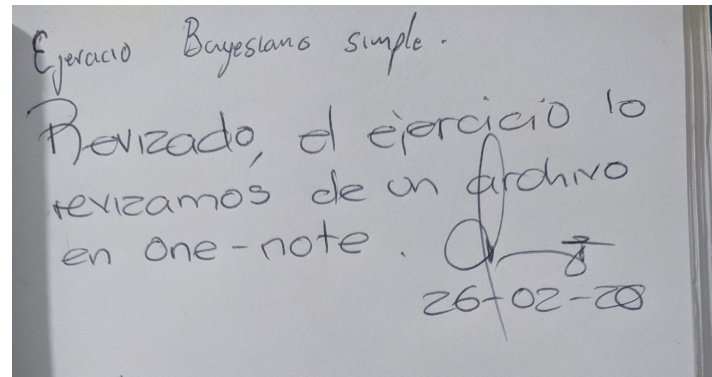 Ejercicio Bayesiano simple.
Revizado, el ejercicio lo
revizamos de un archivo
en one-note.
26-02-20